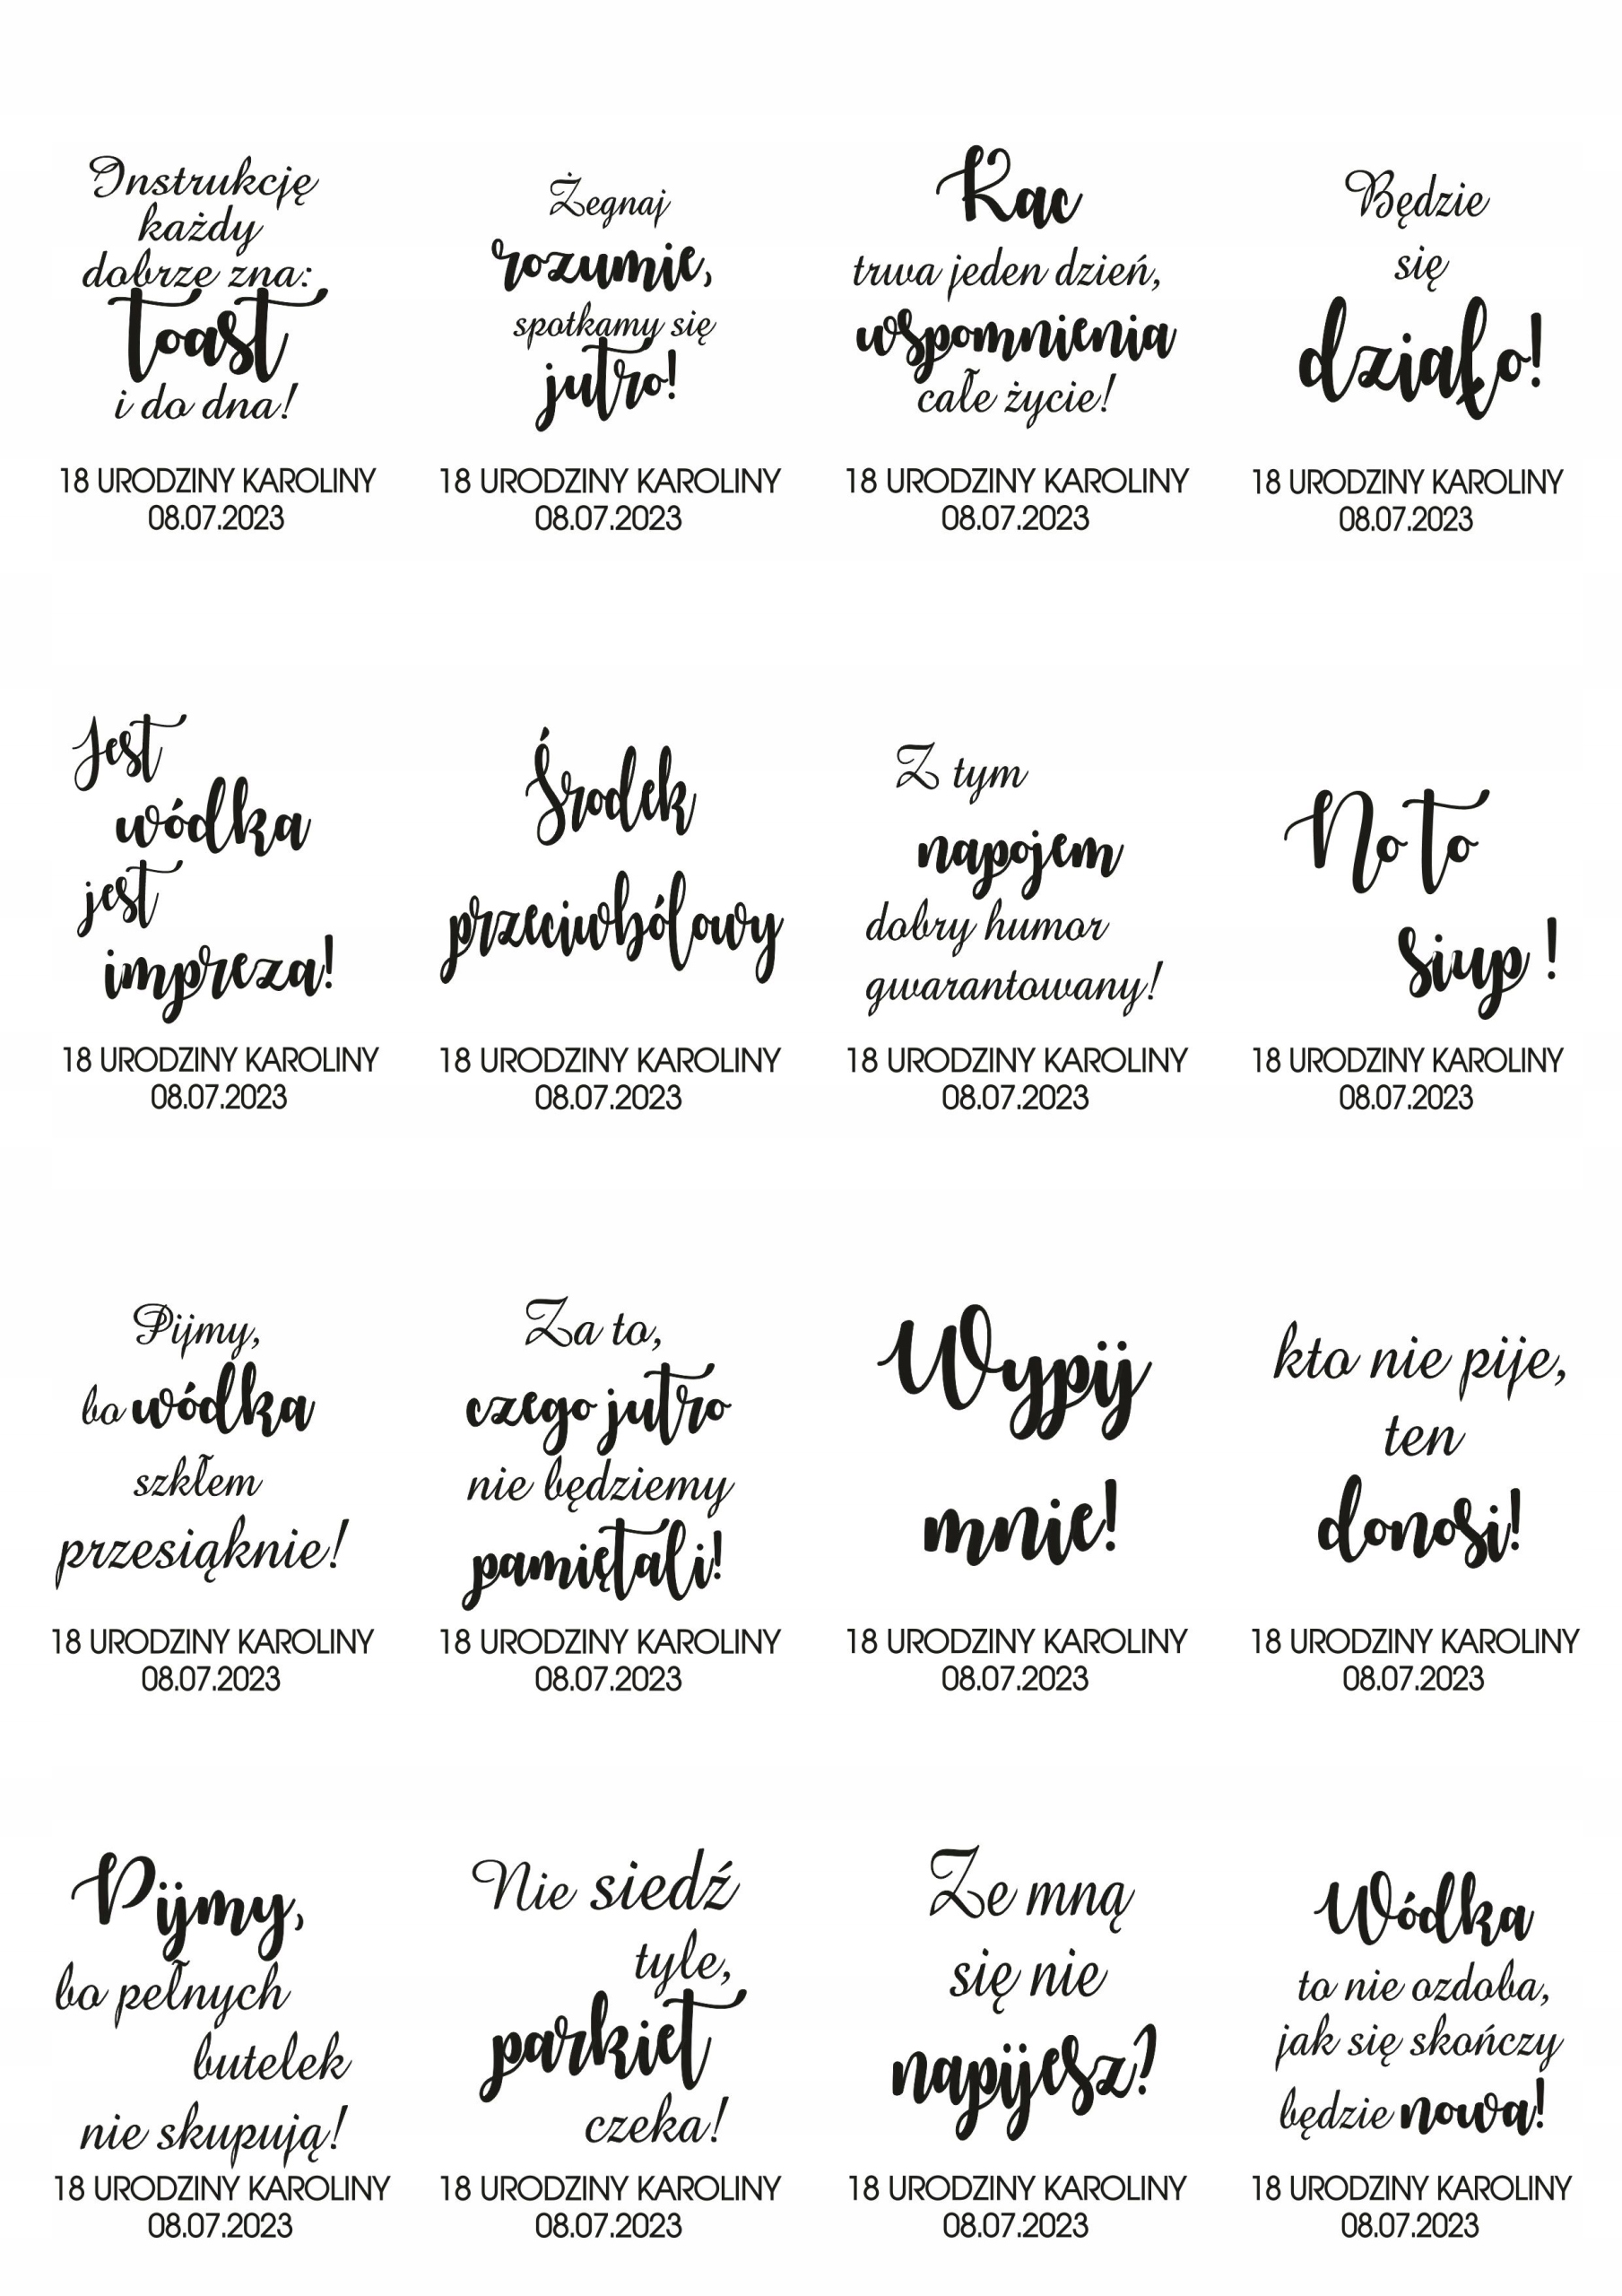 Instrukcję
każdy
dobrze zna:
toast
i do dna!
18 URODZINY KAROLINY
08.07.2023
Żegnaj
rozumie,
spotkamy się
jutro!
18 URODZINY KAROLINY
08.07.2023
Kac
trwa jeden dzień,
wspomnienia
całe życie!
18 URODZINY KAROLINY
08.07.2023
Będzie
się
działo!
18 URODZINY KAROLINY
08.07.2023
Jest
wódka
jest
impreza!
18 URODZINY KAROLINY
08.07.2023
Środek
przeciwbólowy
18 URODZINY KAROLINY
08.07.2023
Z tym
napojem
dobry humor
gwarantowany!
18 URODZINY KAROLINY
08.07.2023
No to
siup !
18 URODZINY KAROLINY
08.07.2023
Pijmy,
bo wódka
szkłem
przesiąknie!
18 URODZINY KAROLINY
08.07.2023
Za to,
czego jutro
nie będziemy
pamiętali!
18 URODZINY KAROLINY
08.07.2023
Wypij
mnie!
18 URODZINY KAROLINY
08.07.2023
kto nie pije,
ten
donosi!
18 URODZINY KAROLINY
08.07.2023
Pijmy,
bo pełnych
butelek
nie skupują!
18 URODZINY KAROLINY
08.07.2023
Nie siedź
tyle,
parkiet
czeka!
18 URODZINY KAROLINY
08.07.2023
Ze mną
się nie
napijesz?
18 URODZINY KAROLINY
08.07.2023
Wódka
to nie ozdoba,
jak się skończy
będzie nowa!
18 URODZINY KAROLINY
08.07.2023